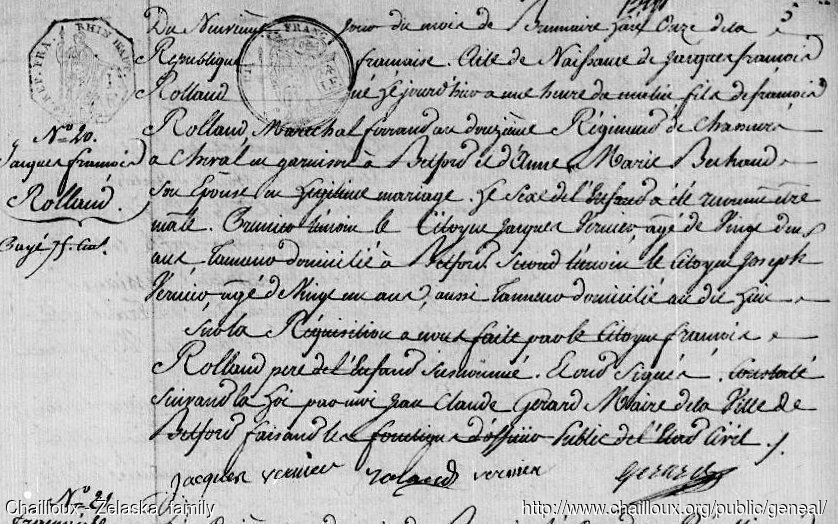 Du Neuvieme jour du mois de Brumaire L'an Onze de la
République française. Acte de Naissance de Jacques françois
Rolland né le jourd'hier a une heure du matin fils de françois
Rolland, Marechal ferrand au douzième Régiment de Chasseurs
a Cheval en garnison à Belford et d'Anne Marie Berhaud
Son Epouse en légitime mariage. Le Sexe de l'Enfand a été reconnu être
mâle. Premier témoin le Citoyen Jacques Vernier, agé de Vingt deux
ans Tanneur domicilié à Belford. Second témoin le Citoyen Joseph
Vernier agé de Vingt un ans, aussi Tanneur domicilié au dit Lieu
Sur la Réquisition a nous faite par le Citoyen françois
Rolland pere de l'Enfand susnommé. Et ond Signés. Constaté
Suivand la Loi par moi Jean Claude Gerard Maire de la Ville de
Belford faisand les fonctions d'officier Public de l'Etat Civil.
jacques vernier rolande vernier Gerard
RÉP. FRA. RHIN HAUT
No. 20.
Jacques françois
Rolland.
Payé 75. Cent.
No. 21
françois
Chailloux - Zelaska family
http://www.chailloux.org/public/geneal/